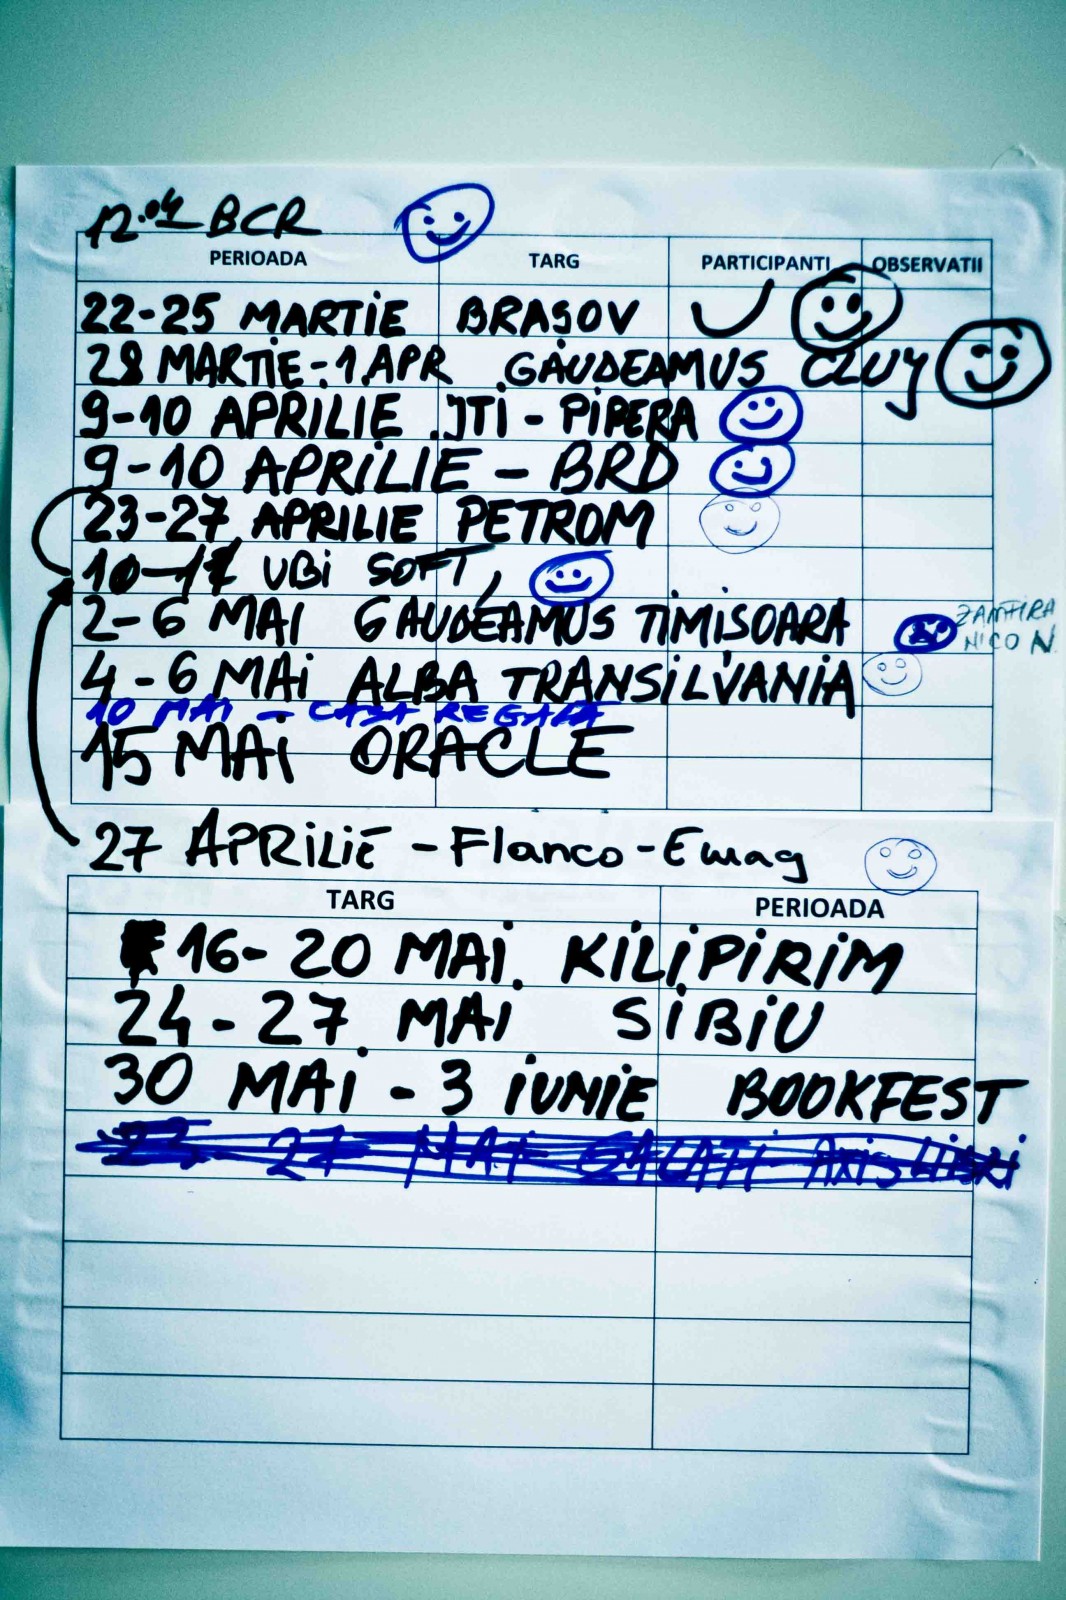 12.04 BCR
PERIOADA TARG PARTICIPANTI OBSERVATII
22-25 MARTIE BRAȘOV
28 MARTIE-1.APR GAUDEAMUS CLUJ
9-10 APRILIE JTI - PIPERA
9-10 APRILIE - BRD
23-27 APRILIE PETROM
UBI SOFT,
2-6 MAI GAUDEAMUS TIMIȘOARA ZAMFIRA
NICO N.
4-6 MAI ALBA TRANSILVANIA
10 MAI - CASA REGALA
15 MAI ORACLE
27 APRILIE - Flanco - Emag
TARG PERIOADA
16-20 MAI KILIPIRIM
24-27 MAI SIBIU
30 MAI - 3 IUNIE BOOKFEST
27 MAI GALATI Axis Libri